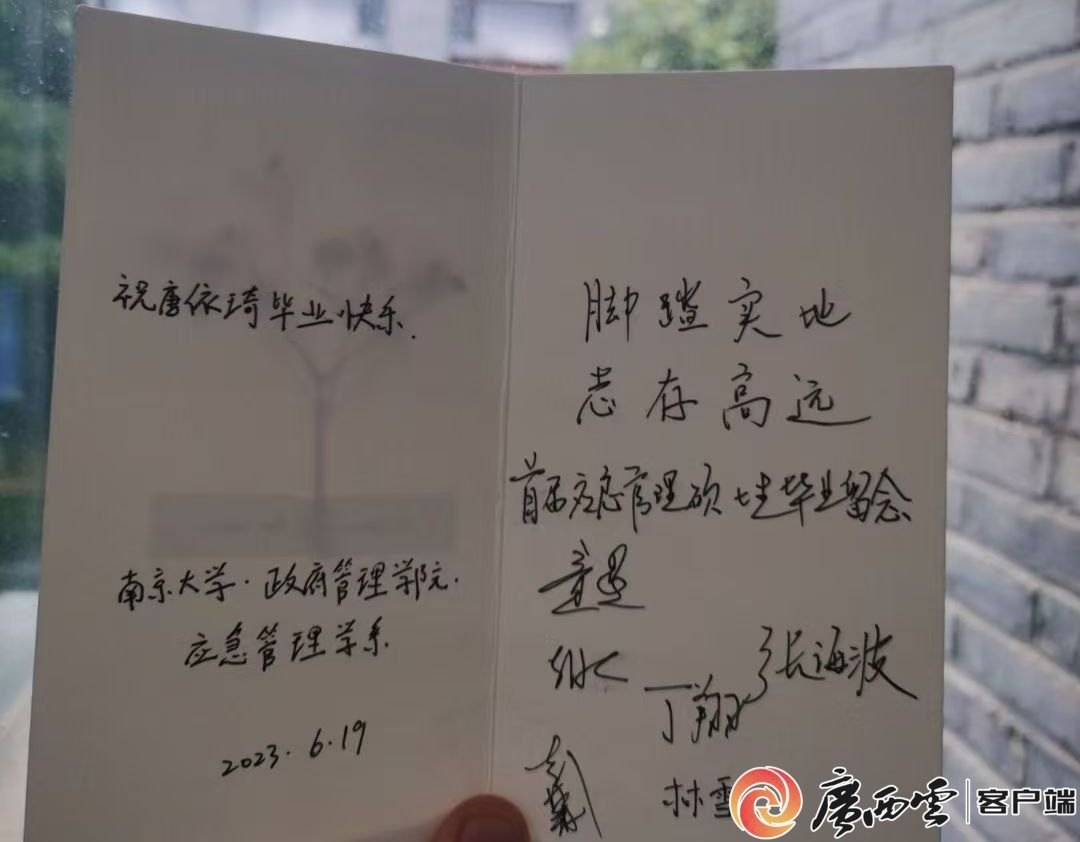 祝唐依琦毕业快乐.
南京大学·政府管理学院.
应急管理学系
2023.6.19
脚踏实地
志存高远
首届应急管理硕士生毕业留念
童星
张海波
丁翔
林雪
廣西雲 客户端